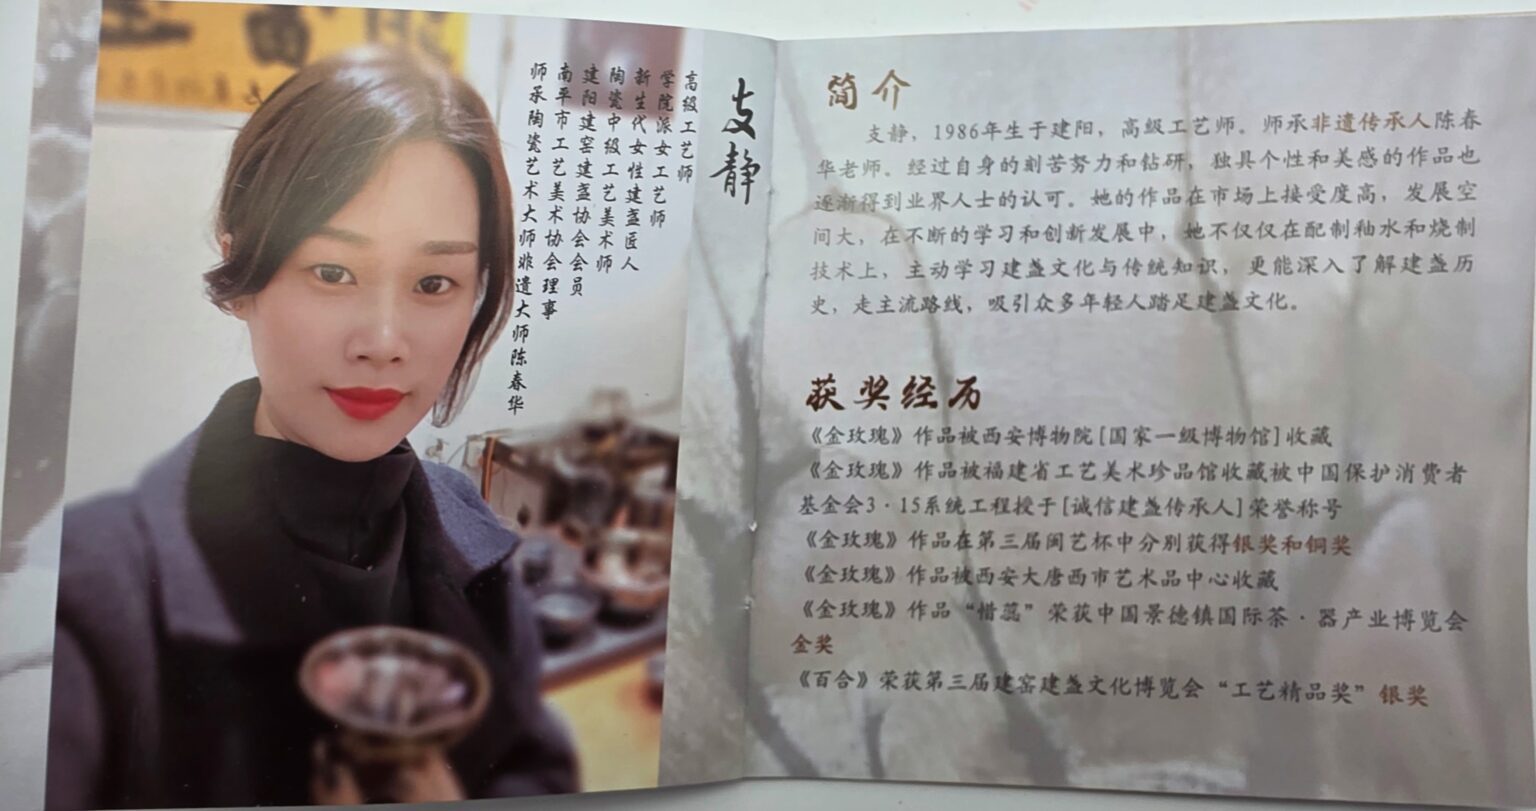 支静
高级工艺师
学院派女工艺师
新生代女性建盏匠人
陶瓷中级工艺美术师
建阳建窑建盏协会会员
南平市工艺美术协会理事
师承陶瓷艺术大师非遗大师陈春华
简介
支静，1986年生于建阳，高级工艺师。师承非遗传承人陈春
华老师。经过自身的刻苦努力和钻研，独具个性和美感的作品也
逐渐得到业界人士的认可。她的作品在市场上接受度高，发展空
间大，在不断的学习和创新发展中，她不仅仅在配制釉水和烧制
技术上，主动学习建盏文化与传统知识，更能深入了解建盏历
史，走主流路线，吸引众多年轻人踏足建盏文化。
获奖经历
《金玫瑰》作品被西安博物院[国家一级博物馆]收藏
《金玫瑰》作品被福建省工艺美术珍品馆收藏被中国保护消费者
基金会3·15系统工程授于[诚信建盏传承人]荣誉称号
《金玫瑰》作品在第三届闽艺杯中分别获得银奖和铜奖
《金玫瑰》作品被西安大唐西市艺术品中心收藏
《金玫瑰》作品“惜蕊”荣获中国景德镇国际茶·器产业博览会
金奖
《百合》荣获第三届建窑建盏文化博览会“工艺精品奖”银奖